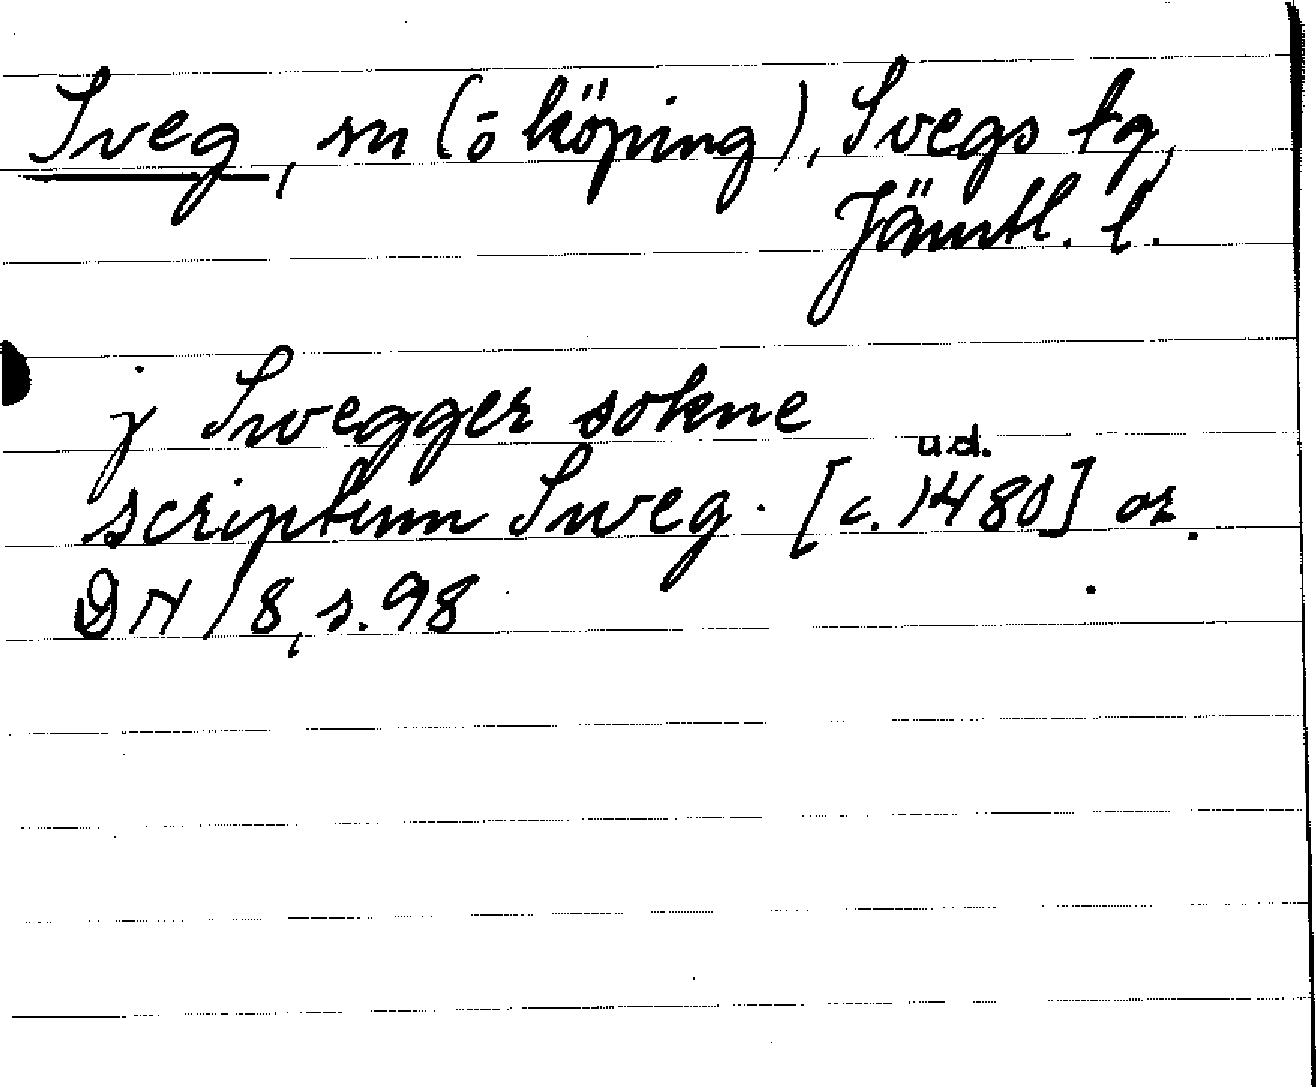 Sveg, sn (ō köping), Svegs tg,
Jämtl. l.
j Swegger sokne
u.d.
scriptum Sweg. [c. 1480] or.
DN 18, s. 98